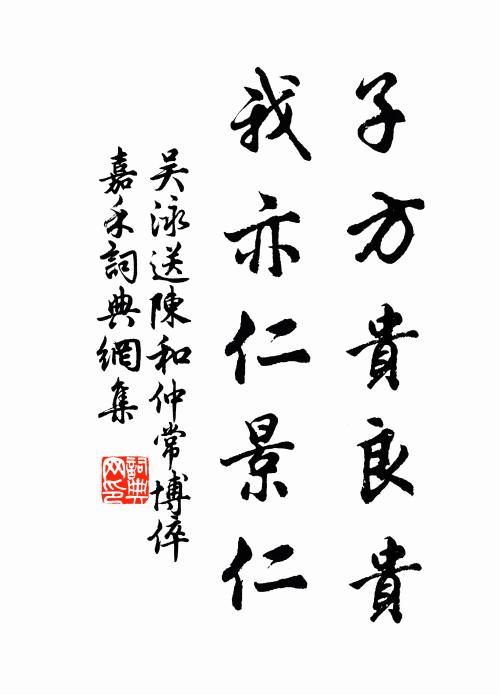 子方貴良貴
我亦仁景仁
吴泳送陳和仲常博倅
嘉禾詞典網集
詞典
网印